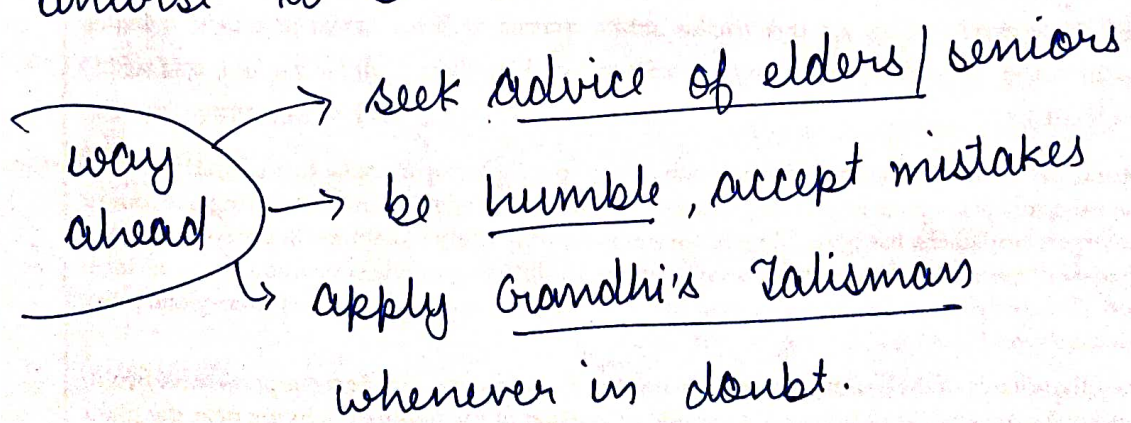 seek advice of elders/seniors
way
ahead
be humble, accept mistakes
apply Gandhi's Talisman
whenever in doubt.